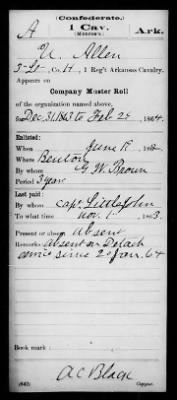 (Confederate.)
A 1 Cav. Ark.
(Monroe's.)
U. Allen
3 Lt, Co. H, 1 Reg't Arkansas Cavalry.
Appears on
Company Muster Roll
of the organization named above,
for Dec. 31, 1863 to Feb 29, 1864.
Enlisted:
When June 18, 186
Where Benton
By whom G. W. Brown
Period 3 years
Last paid:
By whom Capt. Littlejohn
To what time Nov. 1, 1863.
Present or absent Absent
Remarks: Absent on Detach
since 20 Jan. 64
Book mark:
(642) A C Black
Copyist.